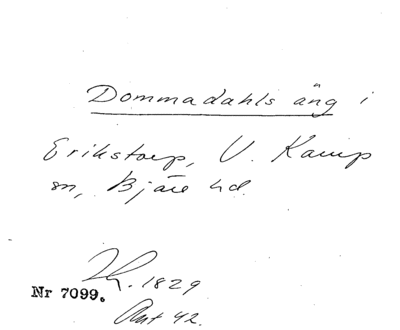 Dommadahls äng i
Erikstorp, V. Karup
sn, Bjäre hd.
1829
Nr 7099.
Ant 42.